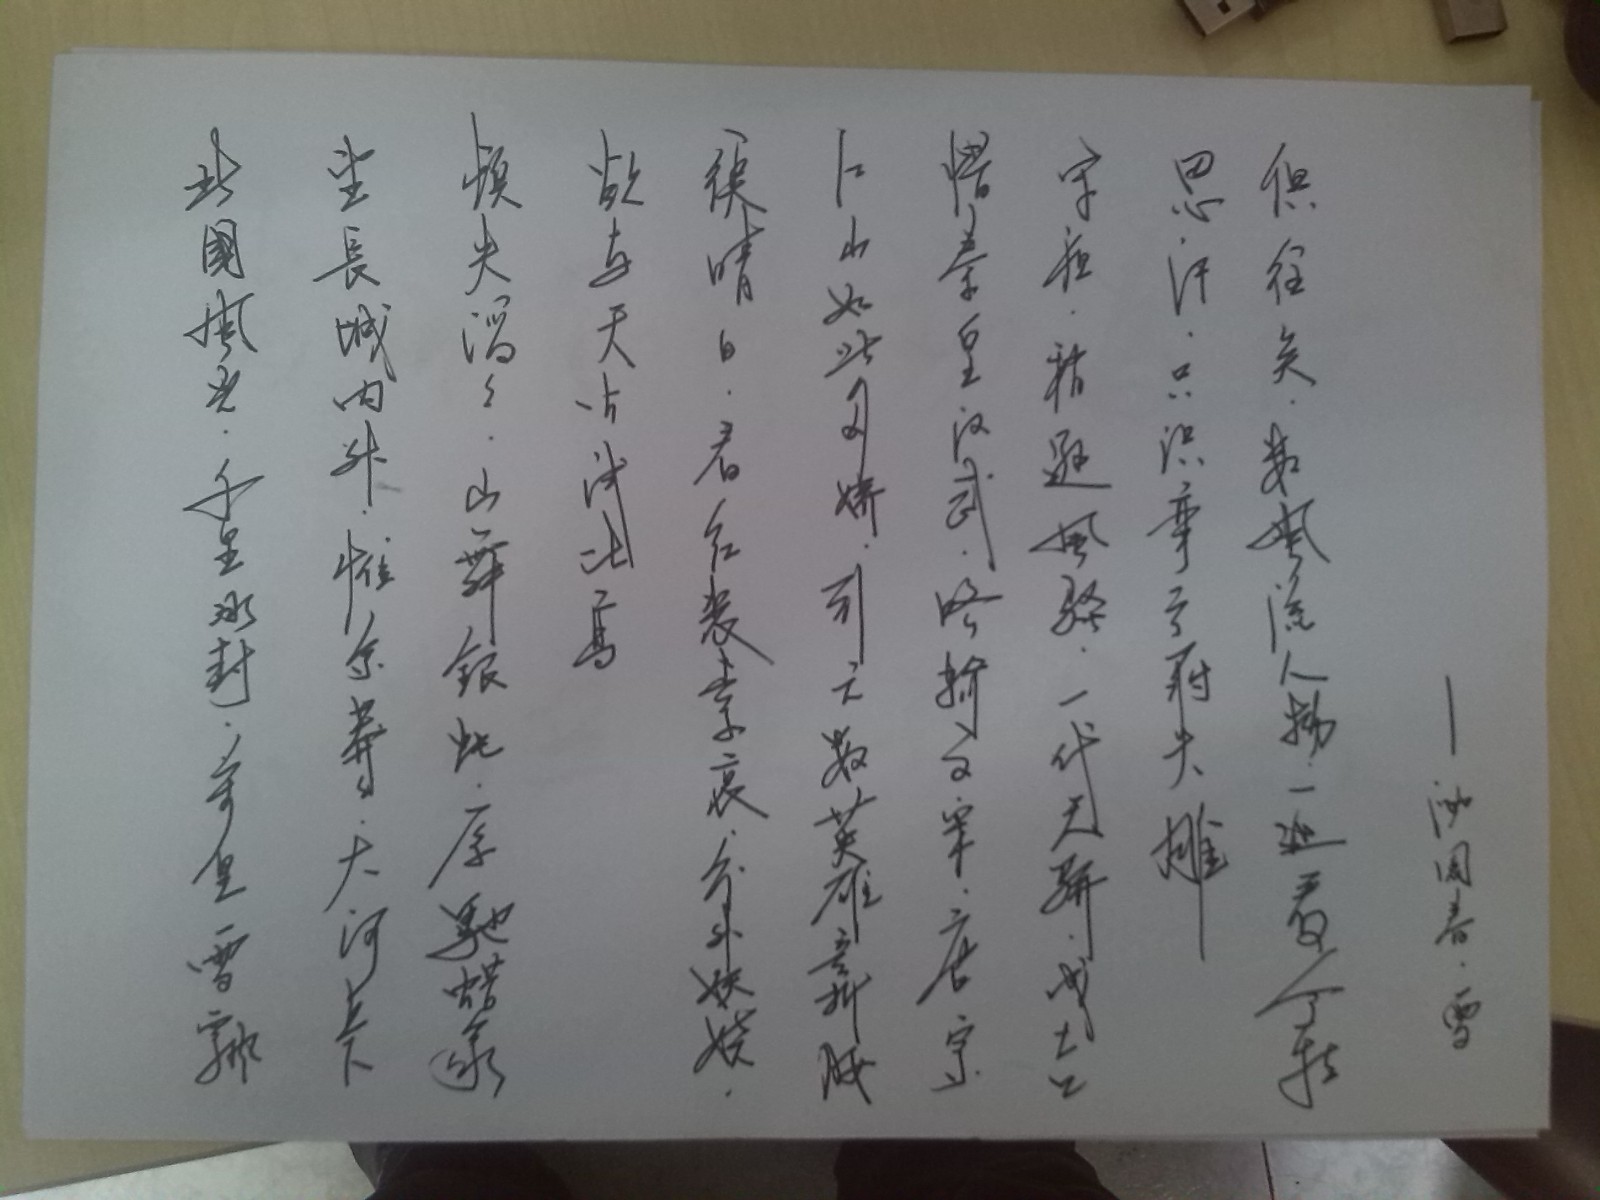 北國風光.千里冰封.万里雪飘
望長城内外.惟余莽々.大河上下
頓失滔々.山舞銀蛇.原馳蜡象
欲与天公试比高
須晴日.看红装素裹.分外妖娆.
江山如此多娇.引无数英雄竞折腰
惜秦皇汉武.略输文采.唐宗
宋祖.稍逊風骚.一代天骄.成吉
思汗.只识弯弓射大雕
俱往矣.数風流人物一还看今朝
—沁园春.雪